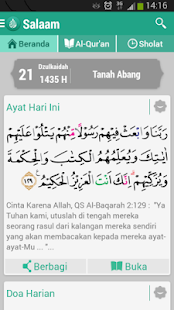 14:16
Salaam
Beranda
Al-Qur'an
Sholat
21
Dzulkaidah
1435 H
Tanah Abang
Ayat Hari Ini
رَبَّنَا وَابْعَثْ فِيهِمْ رَسُولًا مِّنْهُمْ يَتْلُوا عَلَيْهِمْ
آيَاتِكَ وَيُعَلِّمُهُمُ الْكِتَابَ وَالْحِكْمَةَ
وَيُزَكِّيهِمْ إِنَّكَ أَنتَ الْعَزِيزُ الْحَكِيمُ ١٢٩
Cinta Karena Allah, QS Al-Baqarah 2:129 : "Ya
Tuhan kami, utuslah di tengah mereka
seorang rasul dari kalangan mereka sendiri
yang akan membacakan kepada mereka ayat-
ayat-Mu ... "...
Berbagi
Buka
Doa Harian